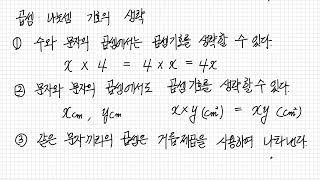 곱셈 나눗셈 기호의 생략
① 수와 문자의 곱셈에서는 곱셈기호를 생략할 수 있다.
x × 4 = 4 × x = 4x
② 문자와 문자의 곱셈에서도 곱셈기호를 생략할 수 있다.
xcm, ycm x×y (cm²) = xy (cm²)
③ 같은 문자끼리의 곱셈은 거듭제곱을 사용하여 나타낸다.